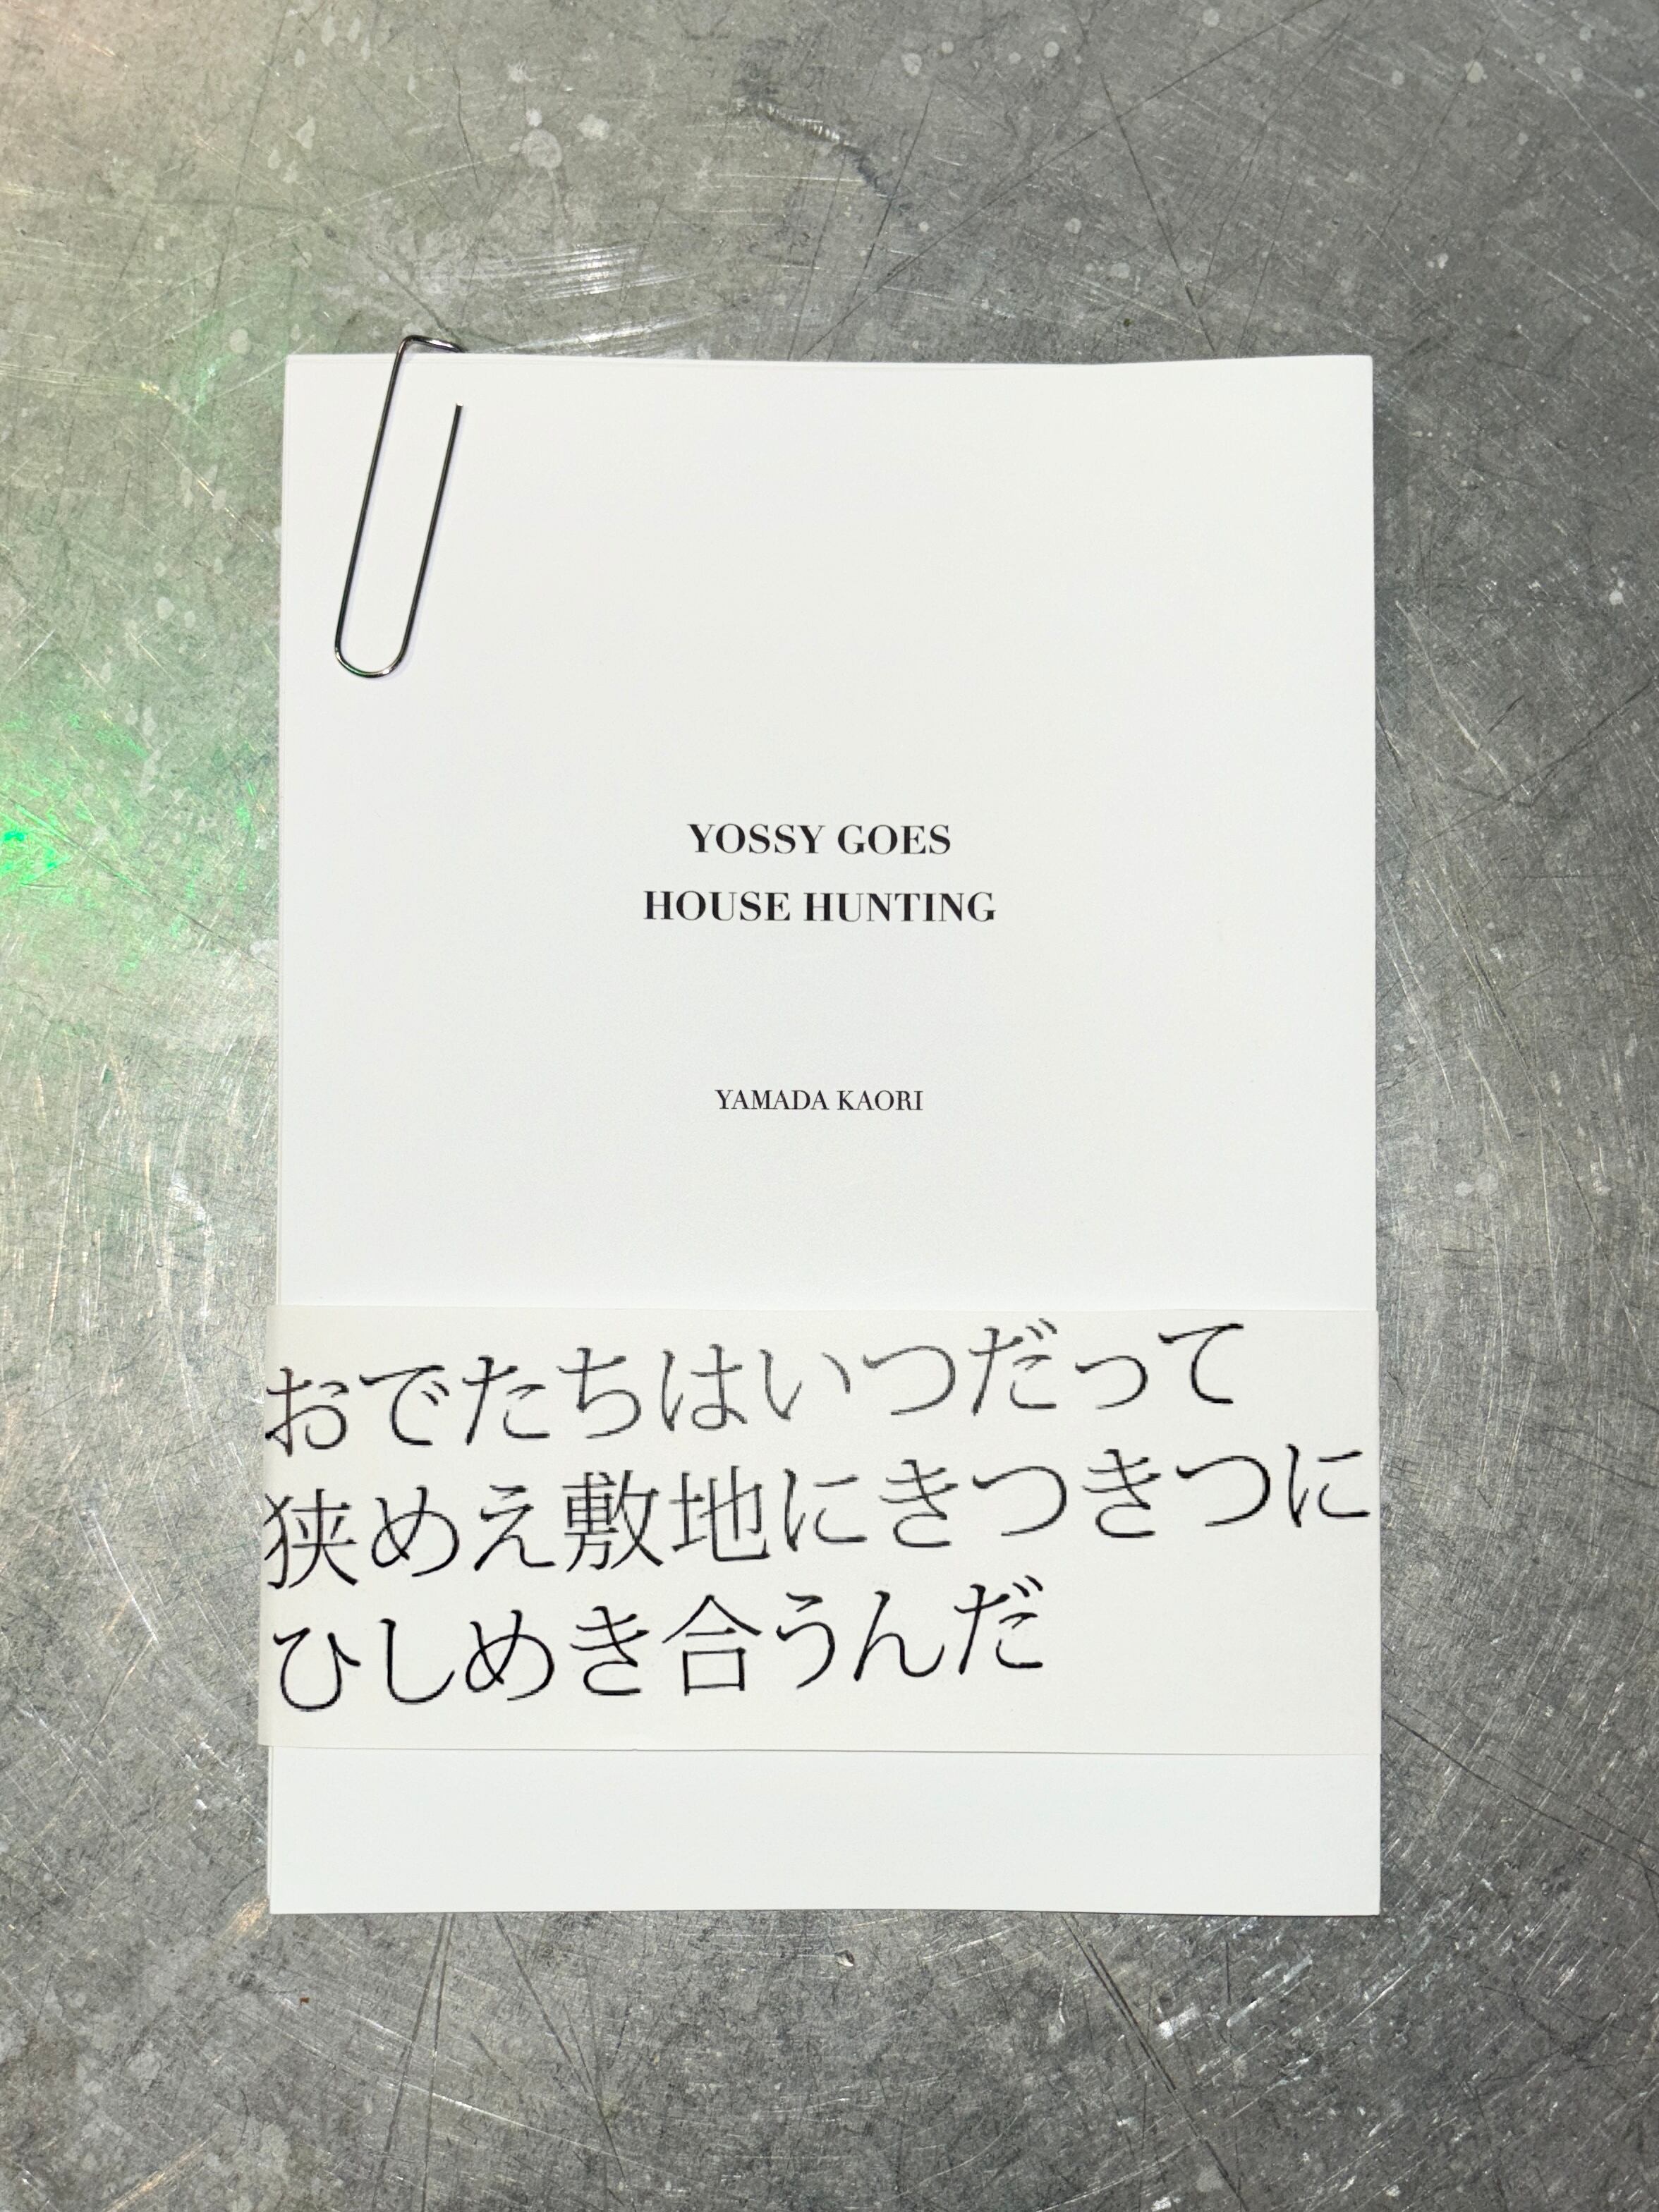 YOSSY GOES
HOUSE HUNTING
YAMADA KAORI
おでたちはいつだって
狭めえ敷地にきつきつに
ひしめき合うんだ